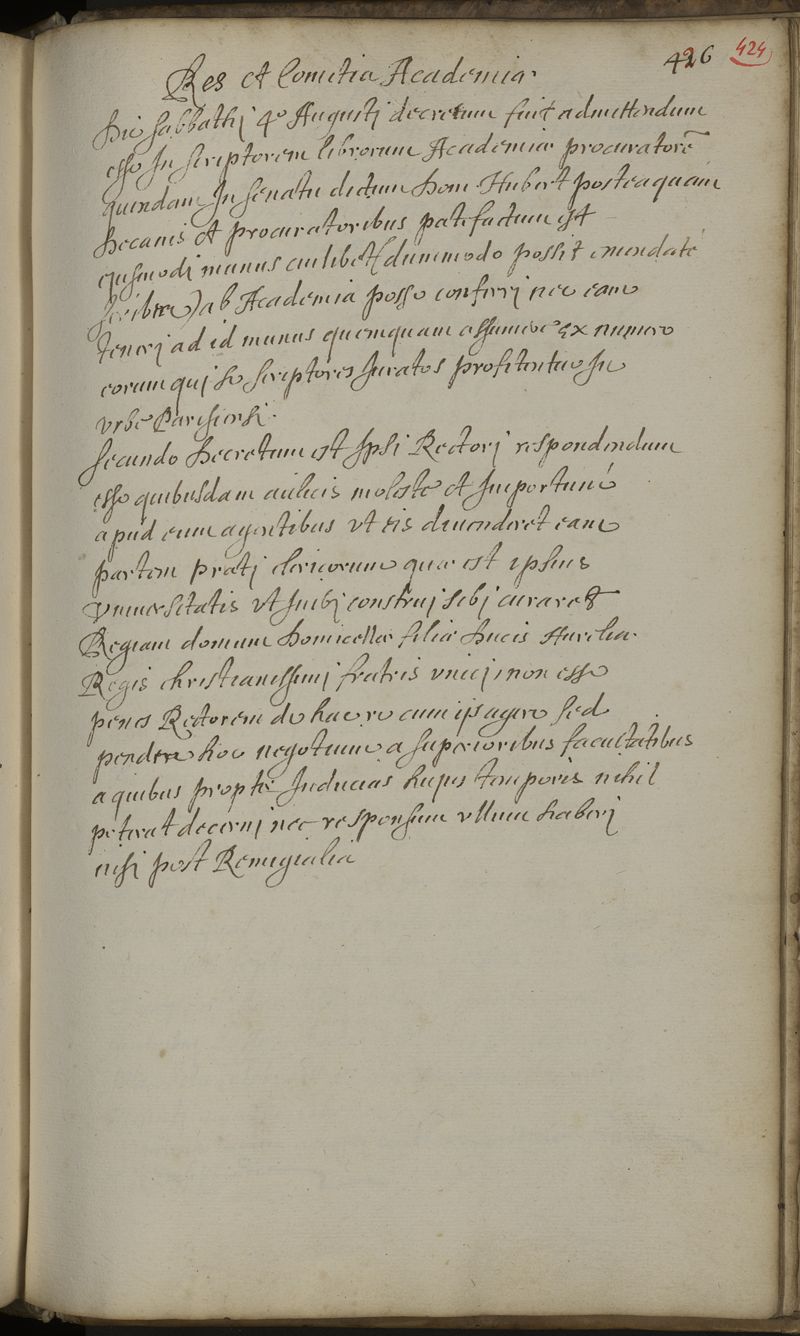 426 424
Res et Comitia Academiæ
Die sabbathj 4º Augustj decretum fuit admittendum
esse In scriptorem librorum Academiæ procuratorē
quendam In senatu dictum Dom Hubert posteaquam
Decanis et procuratoribus patefactum est
ejusmodj munus cuilibet (dummodo possit emendaté
scribere) ab Academia posse conferrj nec eam
tenerj ad id munus quemquam assumere ex numero
eorum quj se scriptores Juratos profitentur In
vrbe Parisiensi.
secundo Decretum est Ipsi Rectorj respondendum
esse quibusdam aulicis molesté et Importuné
apud eum agentibus vt eis diuenderet eam
partem pratj clericorum quæ est ipsius
Vniuersitatis vt Inibj construj sibj curaret
Regiam domum Domicella filia Ducis Aurelia.
Regis christianissimj fratris vnicj non esse
penes Rectorem de hac re cum ijs agere sed
pendere hoc negotium a superioribus facultatibus
a quibus propter Inducias hujus temporis nihil
poterat decernj nec responsum vllum haberj
nisj post Remigialia